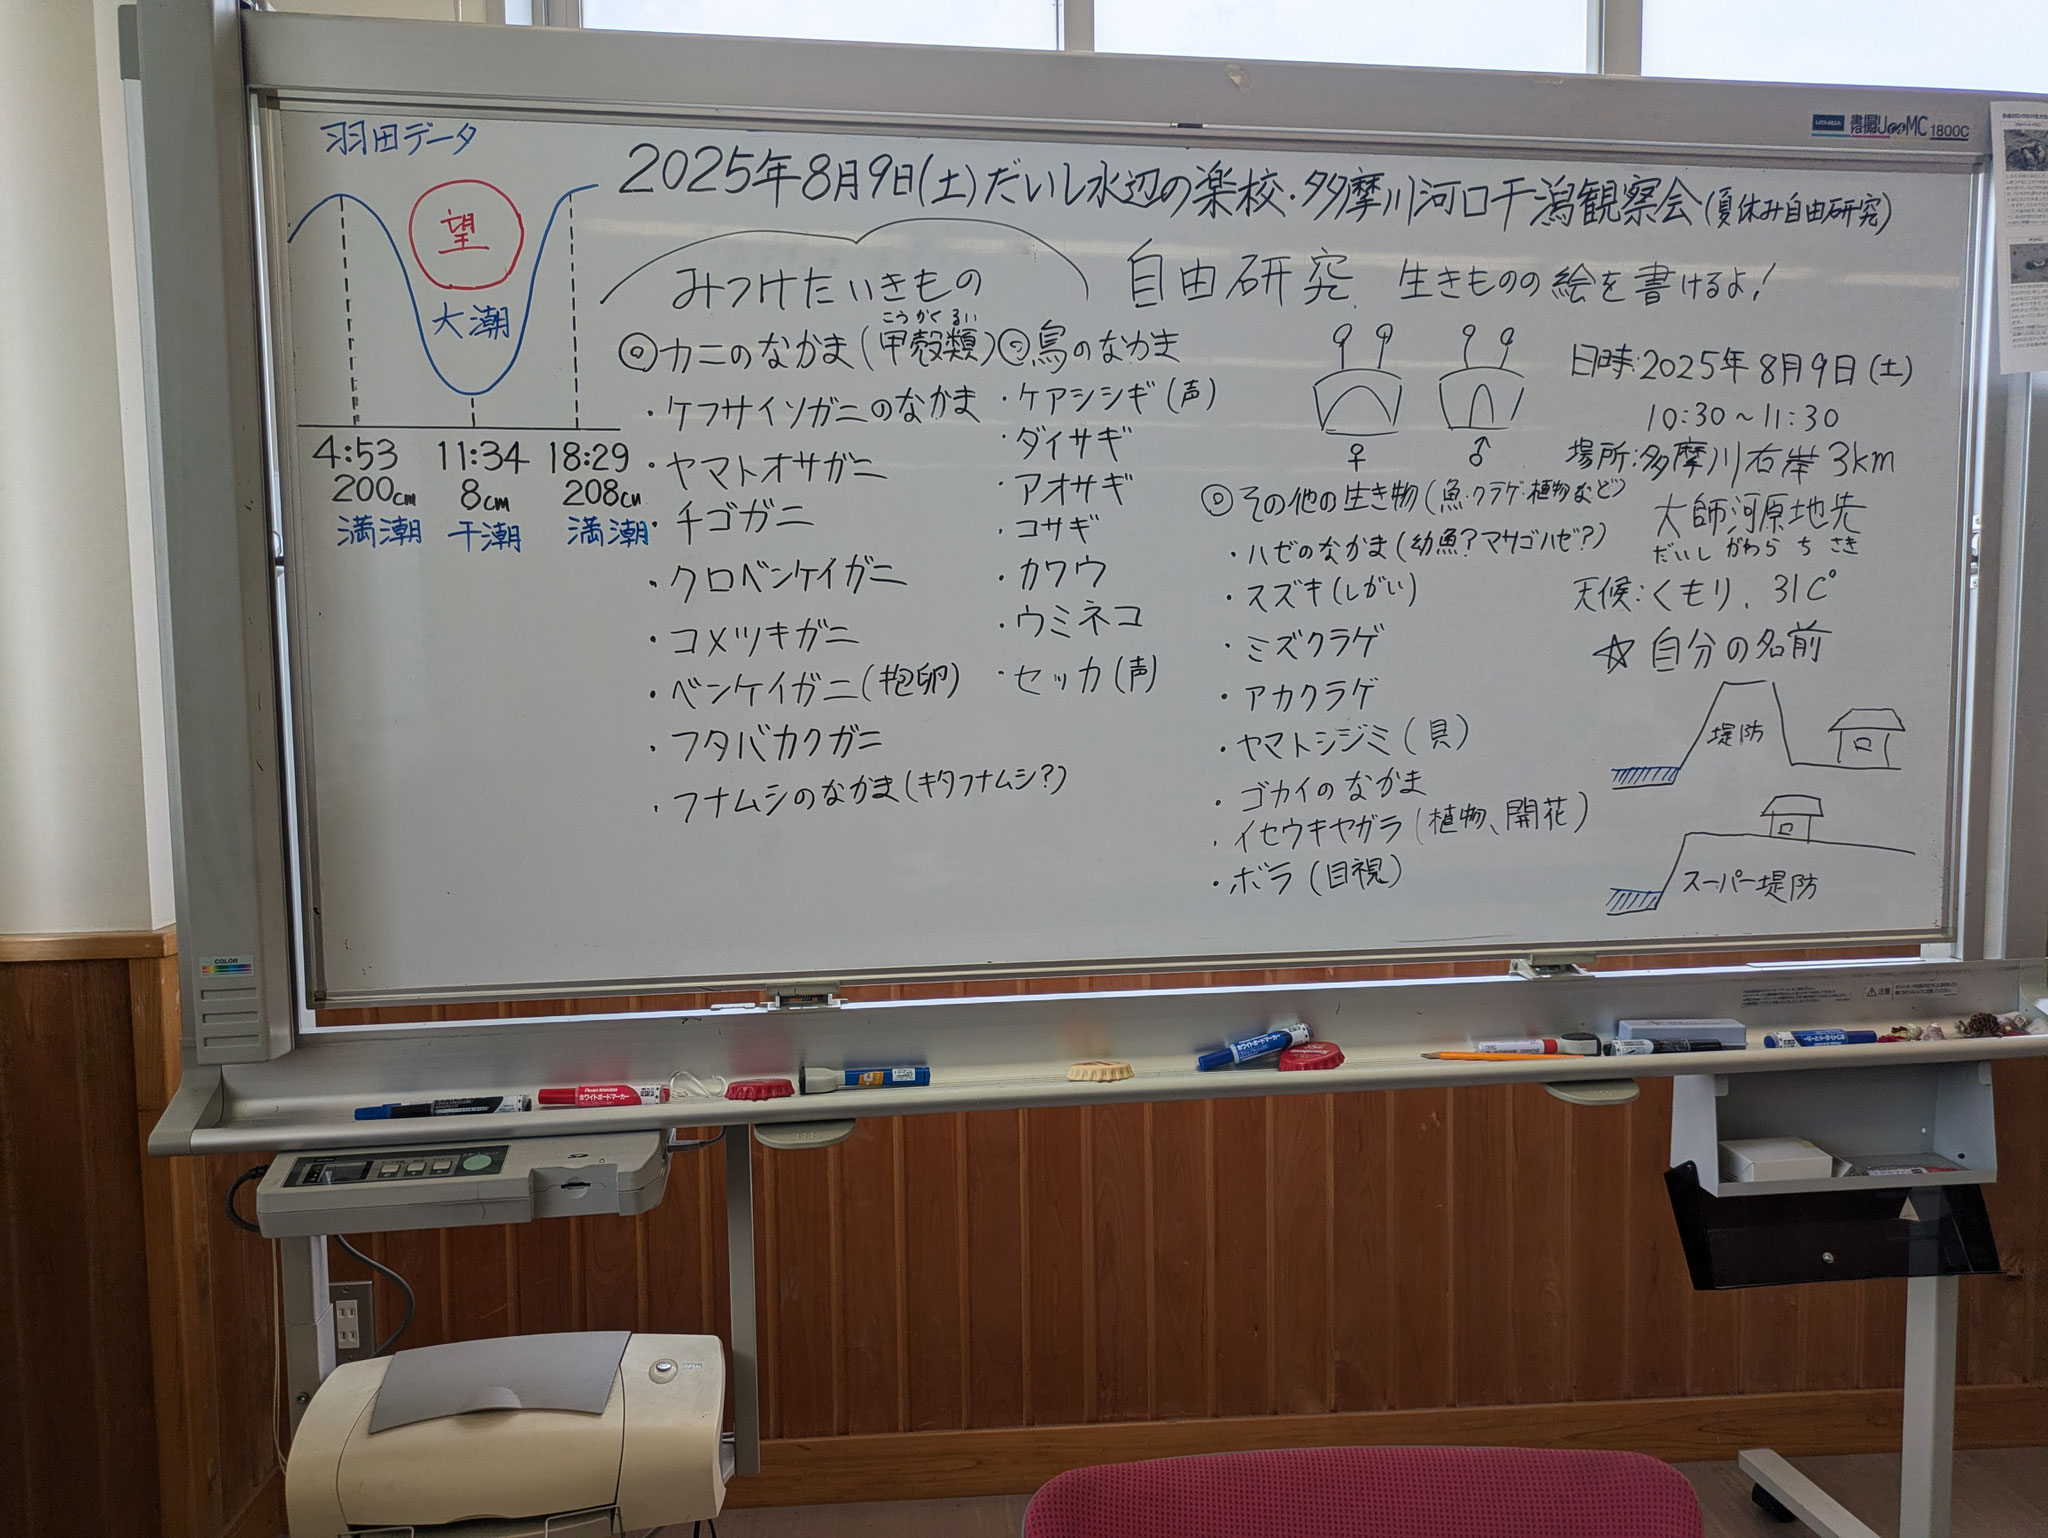 羽田データ
望
大潮
4:53 11:34 18:29
200cm 8cm 208cm
満潮 干潮 満潮
2025年8月9日(土)だいし水辺の楽校・多摩川河口干潟観察会(夏休み自由研究)
みつけたいきもの
こうかくるい
◎カニのなかま(甲殻類)
・ケフサイソガニのなかま
・ヤマトオサガニ
・チゴガニ
・クロベンケイガニ
・コメツキガニ
・ベンケイガニ(抱卵)
・フタバカクガニ
・フナムシのなかま(キタフナムシ?)
◎鳥のなかま
・ケアシシギ(声)
・ダイサギ
・アオサギ
・コサギ
・カワウ
・ウミネコ
・セッカ(声)
自由研究 生きものの絵を書けるよ!
♀ ♂
◎その他の生き物(魚・クラゲ・植物など)
・ハゼのなかま(幼魚?マサゴハゼ?)
・スズキ(しがい)
・ミズクラゲ
・アカクラゲ
・ヤマトシジミ(貝)
・ゴカイのなかま
・イセウキヤガラ(植物、開花)
・ボラ(目視)
日時:2025年8月9日(土)
10:30~11:30
場所:多摩川右岸3km
大師河原地先
だいし がわら ち さき
天候:くもり、31C°
☆自分の名前
堤防
スーパー堤防
UCHIDA 書撮りU∞MC 1800C
COLOR
注意
ホワイトボードマーカー
ホワイトボードマーカー